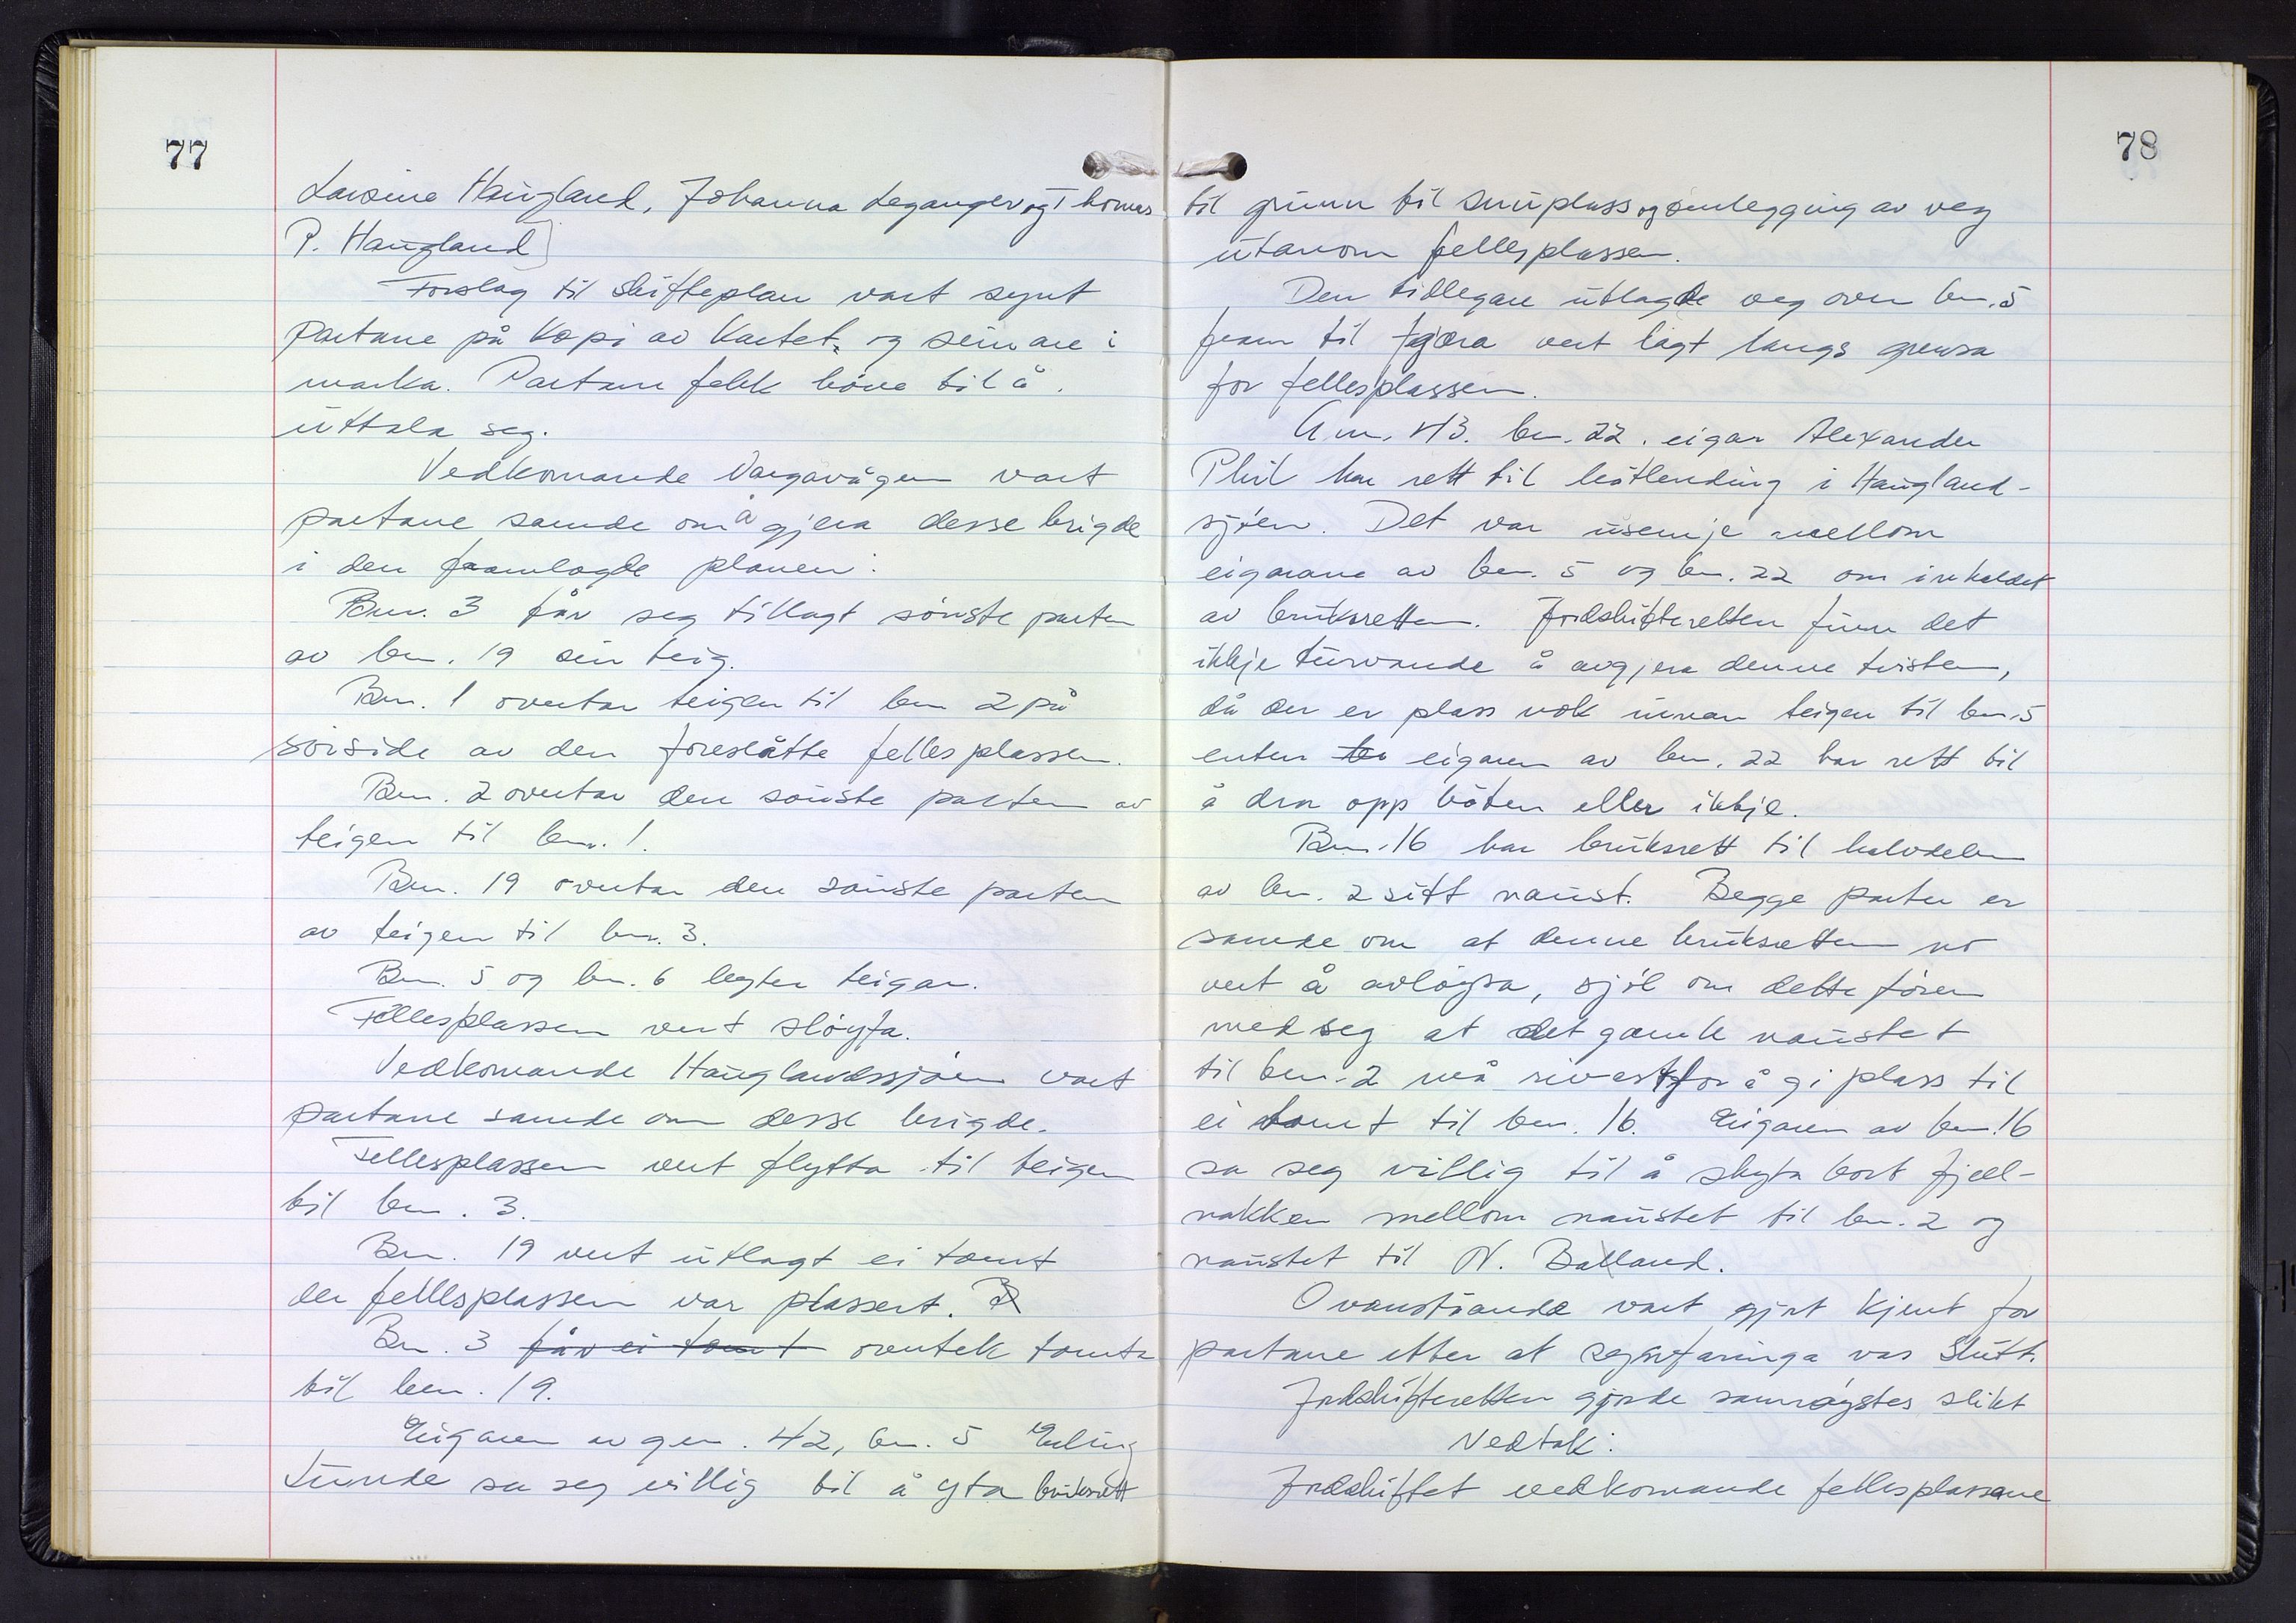 77
Larsine Haugland, Johanna Leganger og Thomas
P. Haugland]
Forslag til skifteplan vart synt
partane på kopi av kartet, og seinare i
marka. Partane fekk høve til å
uttala seg.
Vedkomande Vargavågen vart
partane samde om å gjera desse brigde
i den framlagde planen:
Bnr. 3 får seg tillagt sønste parten
av bnr. 19 sin teig.
Bnr. 1 overtar teigen til bnr 2 på
sørside av den foreslåtte fellesplassen.
Bnr. 2 overtar den sønste parten av
teigen til bnr. 1.
Bnr. 19 overtar den sønste parten
av teigen til bnr. 3.
Bnr. 5 og bnr. 6 byter teigar.
Fellesplassen vert sløyfa.
Vedkomande Hauglandssjøen vart
partane samde om desse brigde.
Fellesplassen vert flytta til teigen
til bnr. 3.
Bnr. 19 vert utlagt ei tomt
der fellesplassen var plassert.
Bnr. 3 får ei tomt overtek tomta
til bnr. 19.
Eigaren av gnr. 42, bnr. 5 Erling
Lunde sa seg villig til å yta bruksrett
78
til grunn til snuplass og omlegging av veg
utanom fellesplassen.
Den tidlegare utlagde veg over bnr. 5
fram til fjøra vert lagt langs grensa
for fellesplassen.
Gnr. 43. bnr. 22. eigar Alexander
Phil har rett til båtlending i Haugland-
sjøen. Det var usemje mellom
eigarane av bnr. 5 og bnr. 22 om inhaldet
av bruksretten. Jordskifteretten finn det
ikkje turvande å avgjera denne tvisten,
då der er plass nok innan teigen til bnr. 5
enten eigaren av bnr. 22 har rett til
å dra opp båten eller ikkje.
Bnr. 16 har bruksrett til halvdelen
av bnr. 2 sitt naust. Begge parter er
samde om at denne bruksretten no
vert å avløysa, sjøl om dette fører
med seg at det gamle naustet
til bnr. 2 må rivast for å gi plass til
ei tomt til bnr. 16. Eigaren av bnr. 16
sa seg villig til å skyta bort fjell-
nakken mellom naustet til bnr. 2 og
naustet til N. Balland.
Ovanståande vart gjort kjent for
partane etter at synfaringa var slutt.
Jordskifteretten gjorde samrøystes slikt
Vedtak:
Jordskiftet vedkomande fellesplassane